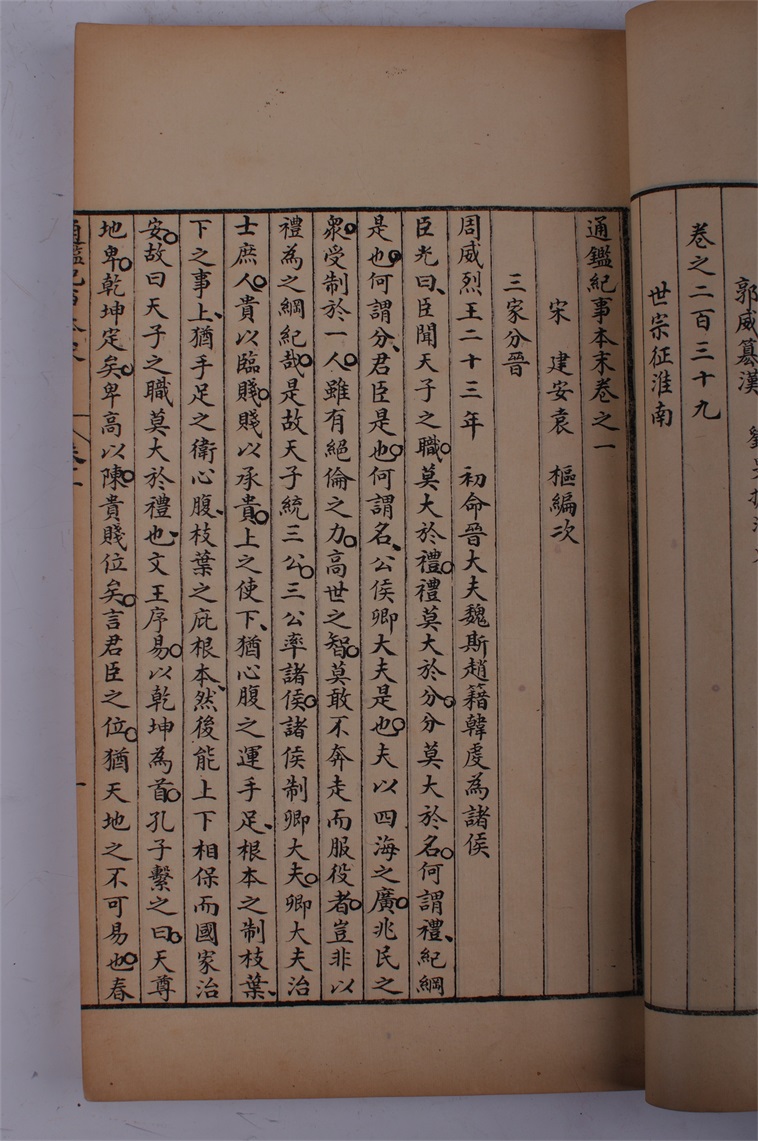 郭威篡漢
卷之二百三十九
世宗征淮南
通鑑紀事本末卷之一
宋 建安袁 樞編次
三家分晉
周威烈王二十三年 初命晉大夫魏斯趙籍韓虔為諸侯
臣光曰、臣聞天子之職。莫大於禮。禮莫大於分。分莫大於名。何謂禮、紀綱
是也。何謂分、君臣是也。何謂名、公侯卿大夫是也。夫以四海之廣。兆民之
衆。受制於一人。雖有絕倫之力。高世之智。莫敢不奔走而服役者。豈非以
禮為之綱紀哉。是故天子統三公。三公率諸侯。諸侯制卿大夫。卿大夫治
士庶人。貴以臨賤。賤以承貴。上之使下、猶心腹之運手足、根本之制枝葉、
下之事上、猶手足之衛心腹、枝葉之庇根本、然後能上下相保而國家治
安。故曰天子之職莫大於禮也、文王序易。以乾坤為首。孔子繫之曰。天尊
地卑。乾坤定矣。卑高以陳。貴賤位矣。言君臣之位。猶天地之不可易也。春